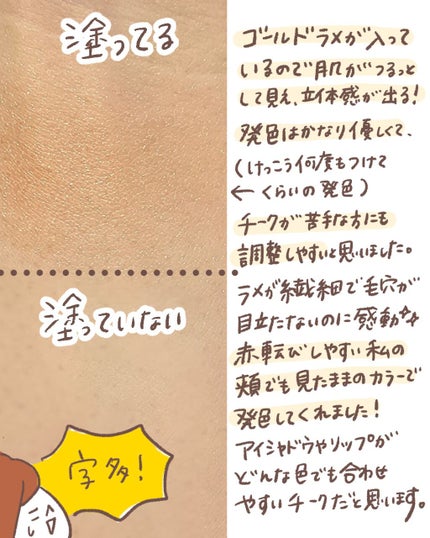 塗ってる
ゴールドラメが入って
いるので肌がつるっと
して見え、立体感が出る!
発色はかなり優しくて、
(けっこう何度もつけて
← くらいの発色)
チークが苦手な方にも
調整しやすいと思いました。
塗っていない
ラメが繊細で毛穴が
目立たないのに感動な
赤転びしやすい私の
頬でも見たままのカラーで
発色してくれました!
アイシャドウやリップが
どんな色でも合わせ
やすいチークだと思います。
字多!